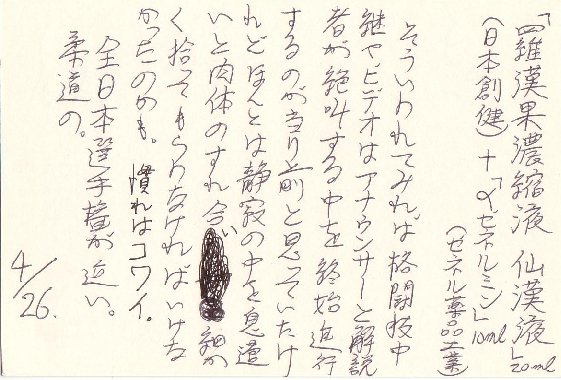 「羅漢果濃縮液 仙漢液」20ml
(日本創健)+「ゼネルミン」10ml
(ゼネル薬品工業)
そういわれてみれば格闘技中
継や、ビデオはアナウンサーと解説
者が絶叫する中を終始進行
するのが当り前と思っていたけ
れどほんとは静寂の中を息遣
いと肉体のすれ合い 細か
く拾ってもらわなければいけな
かったのかも。慣れはコワイ。
全日本選手権が近い。
柔道の。
4/26.